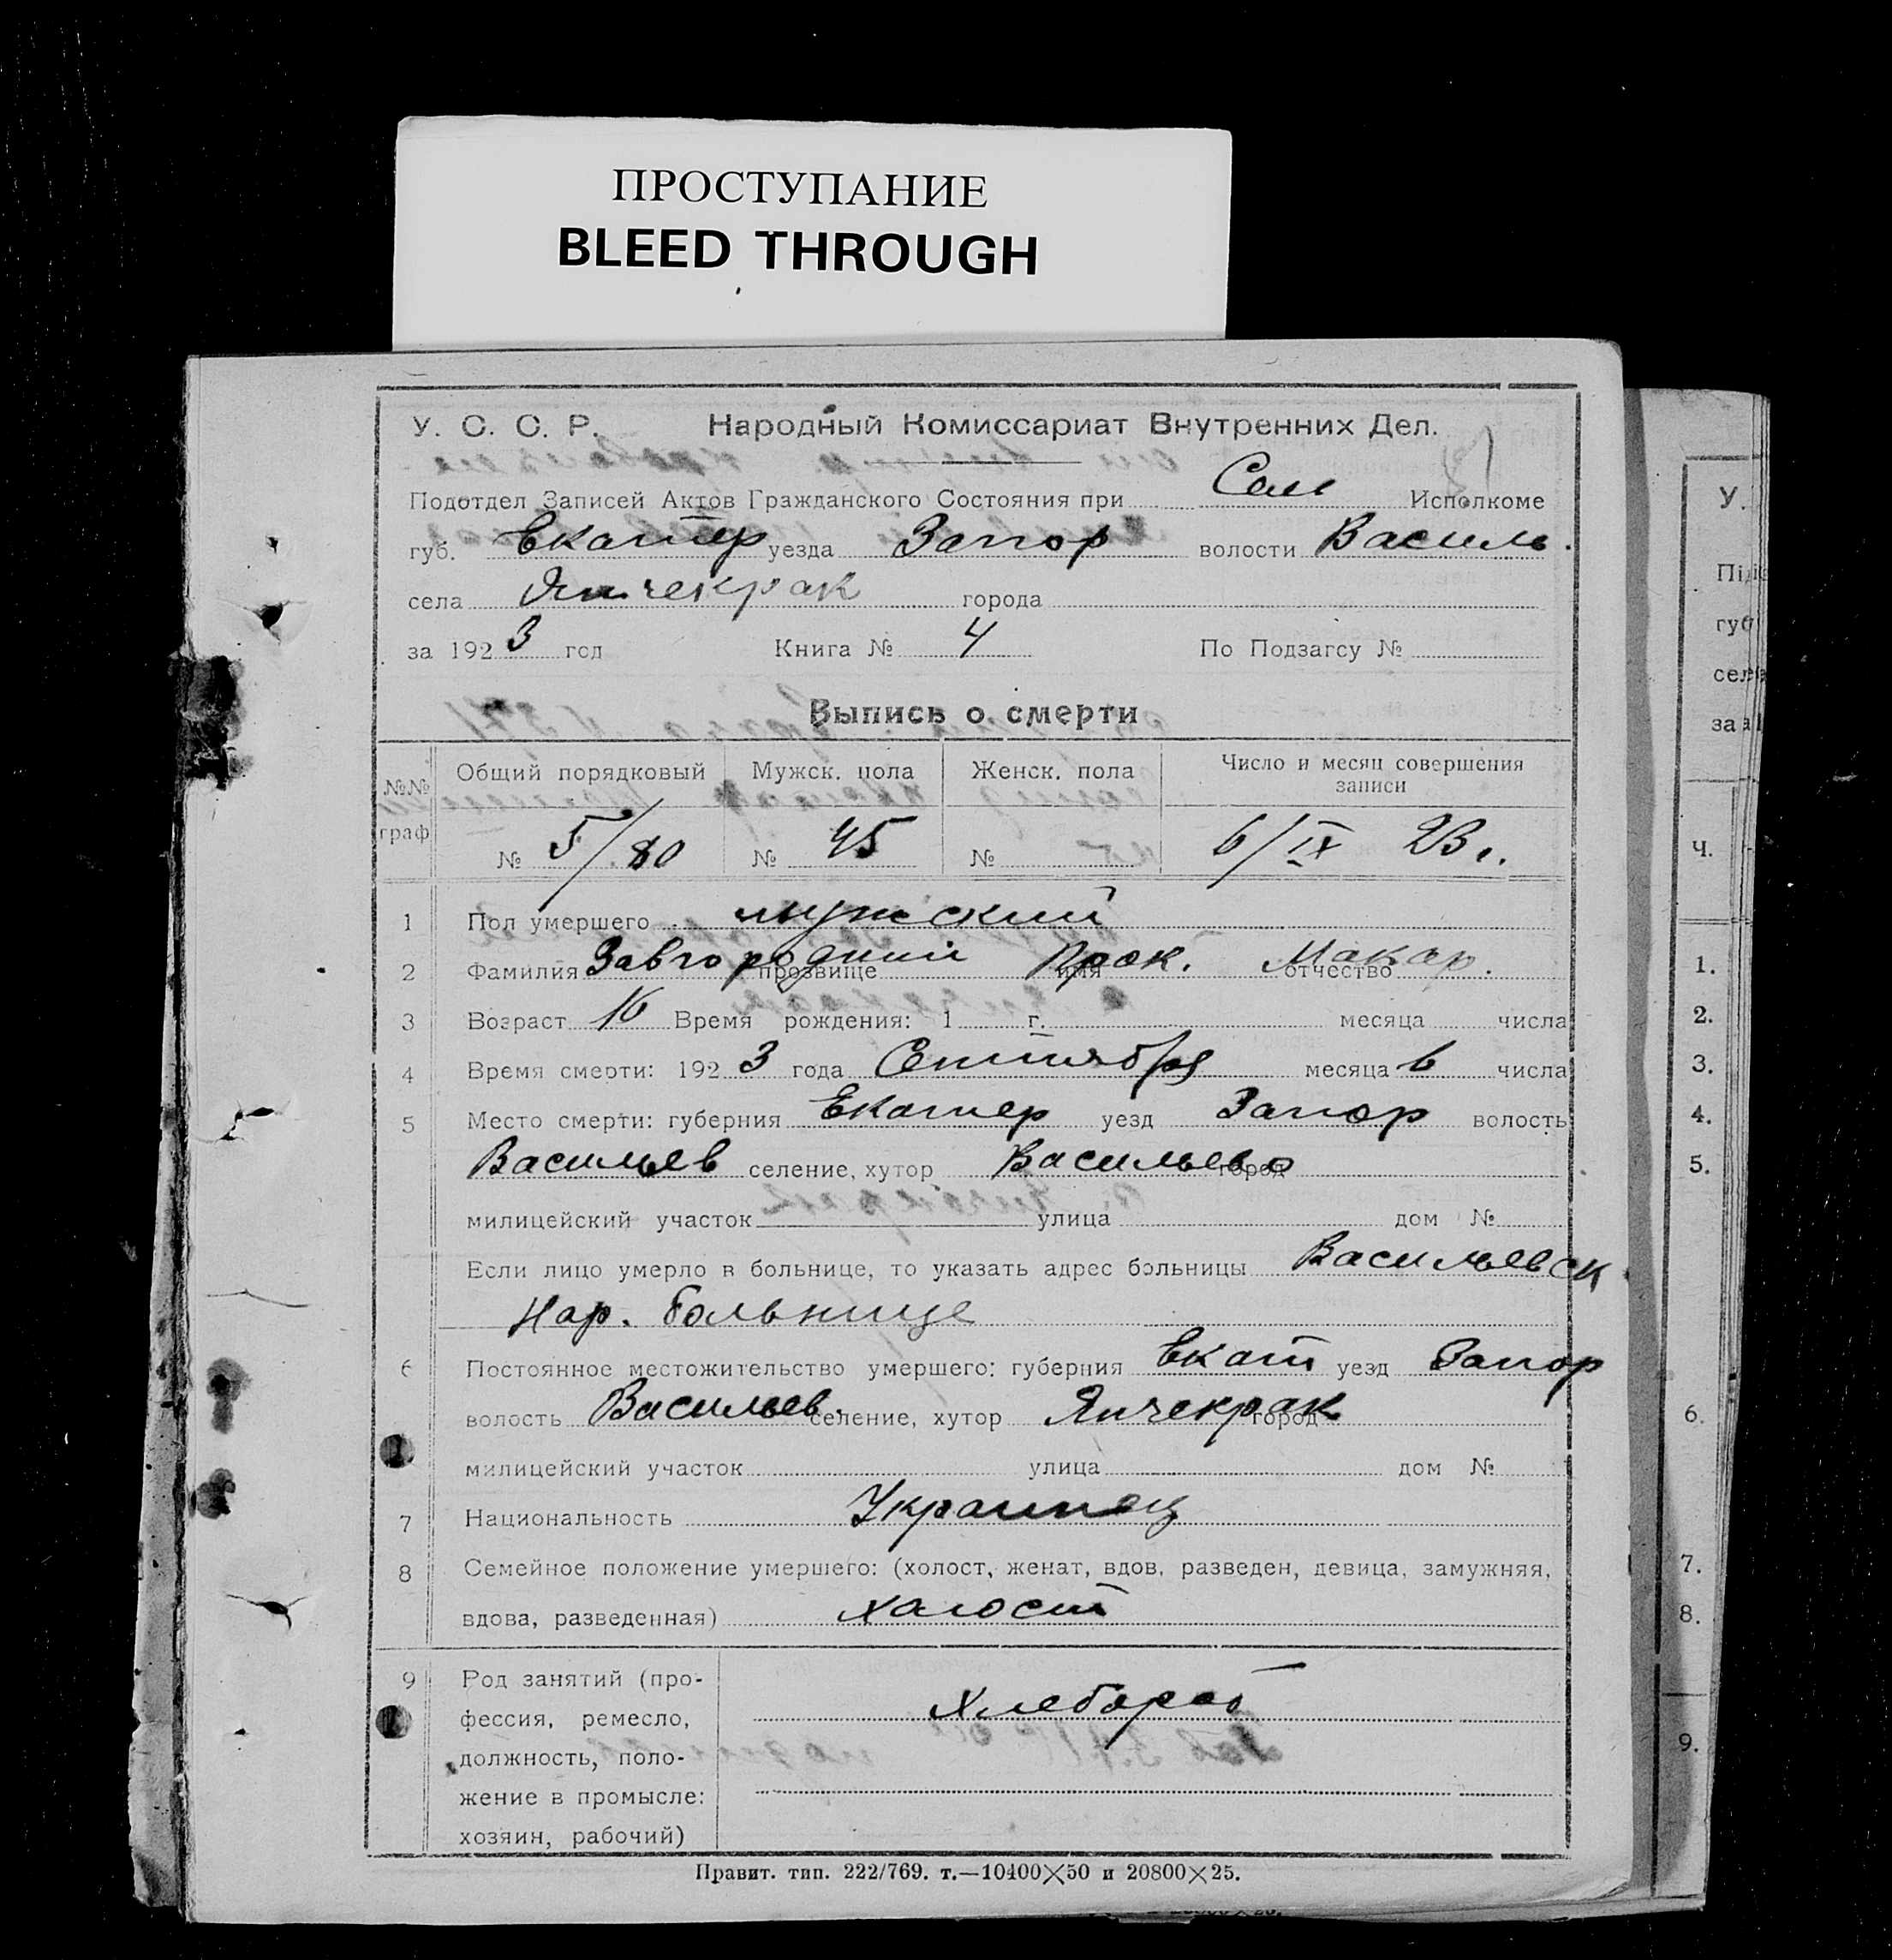 ПРОСТУПАНИЕ
BLEED THROUGH
У. С. С. Р. Народный Комиссариат Внутренних Дел.
Подотдел Записей Актов Гражданского Состояния при Сель Исполкоме
губ. Екатер уезда Запор волости Василь.
села Янчекрак города
за 1923 год Книга № 4 По Подзагсу №
Выпись о смерти
№№ граф
Общий порядковый Мужск. пола Женск. пола Число и месяц совершения записи
№ 5/80 № 45 № 6/IX 23 г.
1 Пол умершего мужский
2 Фамилия Завгородний прозвище имя Прок. отчество Макар.
3 Возраст 16 Время рождения: 1 г. месяца числа
4 Время смерти: 1923 года Сентября месяца 6 числа
5 Место смерти: губерния Екатер уезд Запор волость
Васильев селение, хутор Васильево город
милицейский участок улица дом №
Если лицо умерло в больнице, то указать адрес больницы Васильевск
Нар. больнице
6 Постоянное местожительство умершего: губерния Екат уезд Запор
волость Васильев. селение, хутор Янчекрак город
милицейский участок улица дом №
7 Национальность Украинец
8 Семейное положение умершего: (холост, женат, вдов, разведен, девица, замужняя,
вдова, разведенная) халост
9 Род занятий (про-
фессия, ремесло, Хлебороб
должность, поло-
жение в промысле:
хозяин, рабочий)
Правит. тип. 222/769. т.—10400×50 и 20800×25.
У.
губ
за 1
Ч.
1.
2.
3.
4.
5.
6.
7.
8.
9.